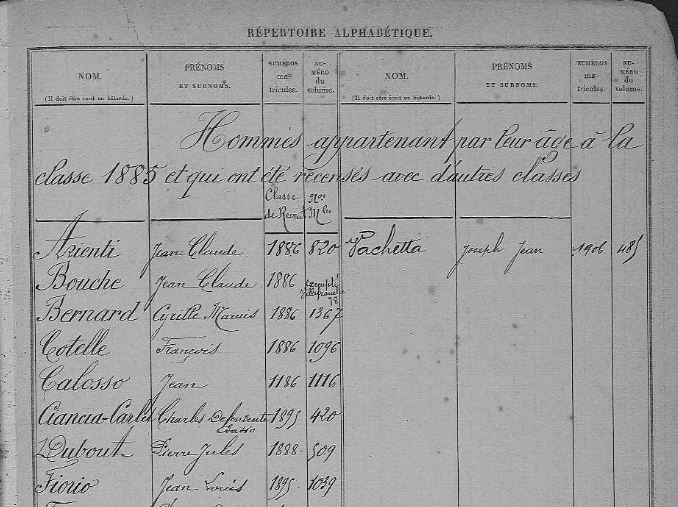 RÉPERTOIRE ALPHABÉTIQUE.
NOM. PRÉNOMS ET SURNOMS. NUMÉROS ma- tricules. NU- MÉRO du volume. NOM. PRÉNOMS ET SURNOMS. NUMÉROS ma- tricules. NU- MÉRO du volume.
(Il doit être écrit en bâtarde.) (Il doit être écrit en bâtarde.)
Hommes appartenant par leur âge à la
classe 1885 et qui ont été recensés avec d'autres classes
Classe de Recrut Nos Mles
Azienti Jean Claude 1886 820 Vachetta Joseph Jean 1906 485
Bouche Jean Claude 1886 Villefranche
Bernard Cyrille Marius 1886 1367
Cotelle François 1886 1096
Calosso Jean 1886 1116
Ciancia-Carlet Charles 1895 420
Dubout Pierre Jules 1888 509
Fiorio Jean Louis 1895 1039